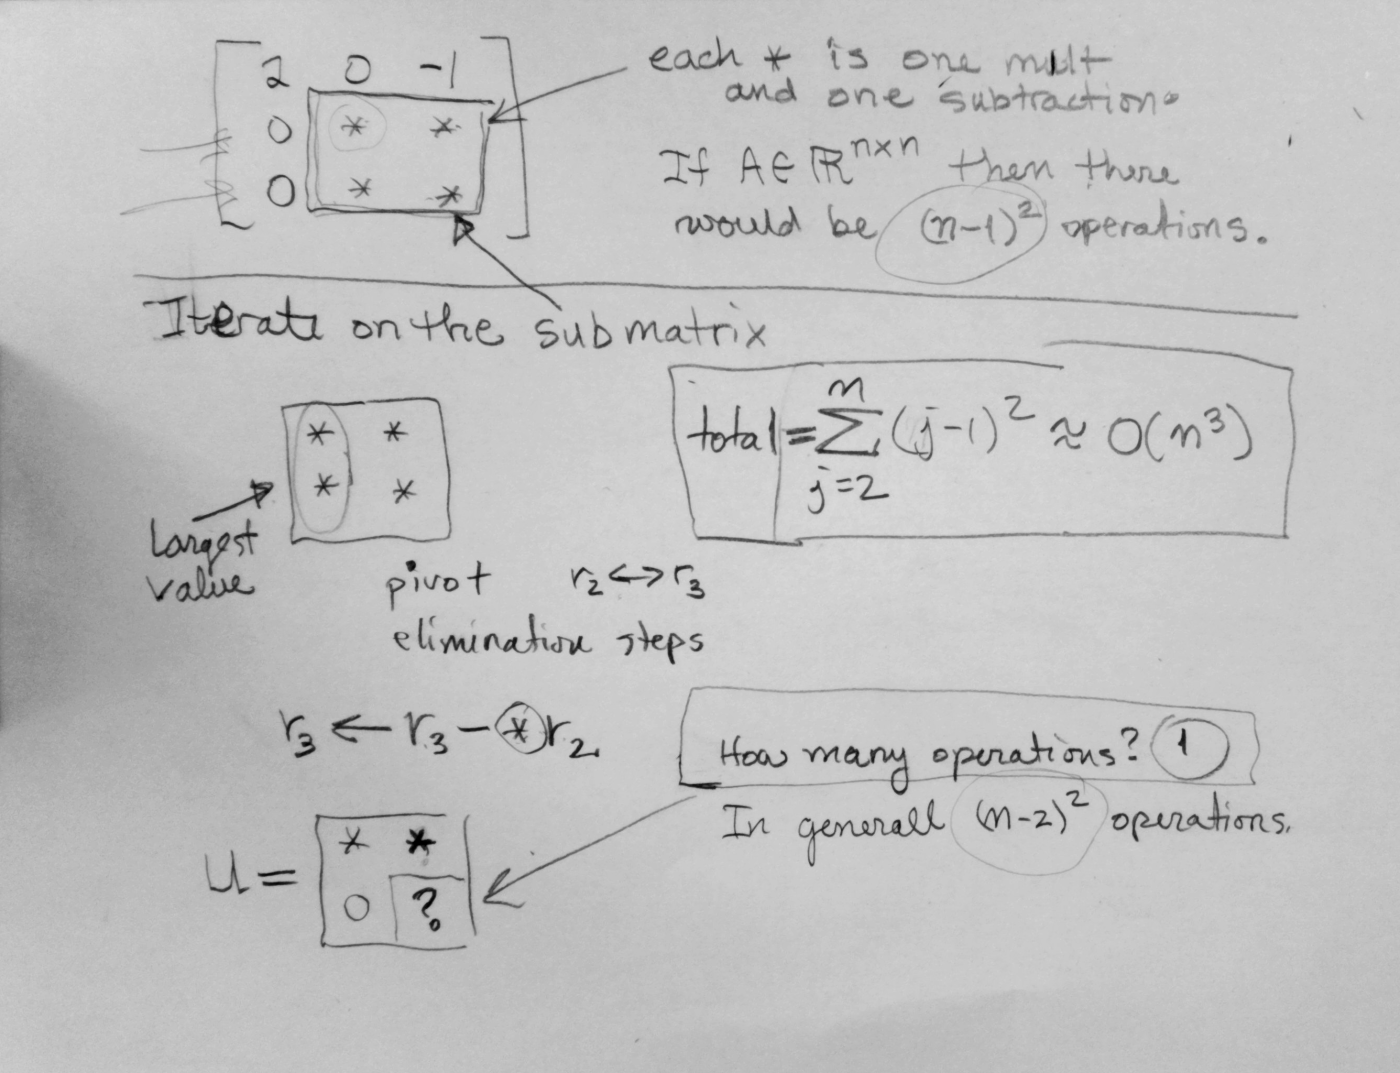 2 0 -1
0 * *
0 * *
each * is one mult
and one subtraction.
If A ∈ ℝ^{n×n} then there
would be (n-1)² operations.
Iterate on the submatrix
* *
* *
Largest
value
total = ∑_{j=2}^{n} (j-1)² ≈ O(n³)
pivot r₂ ↔ r₃
elimination steps
r₃ ← r₃ - * r₂
How many operations? 1
In generall (n-2)² operations.
U = * *
0 ?